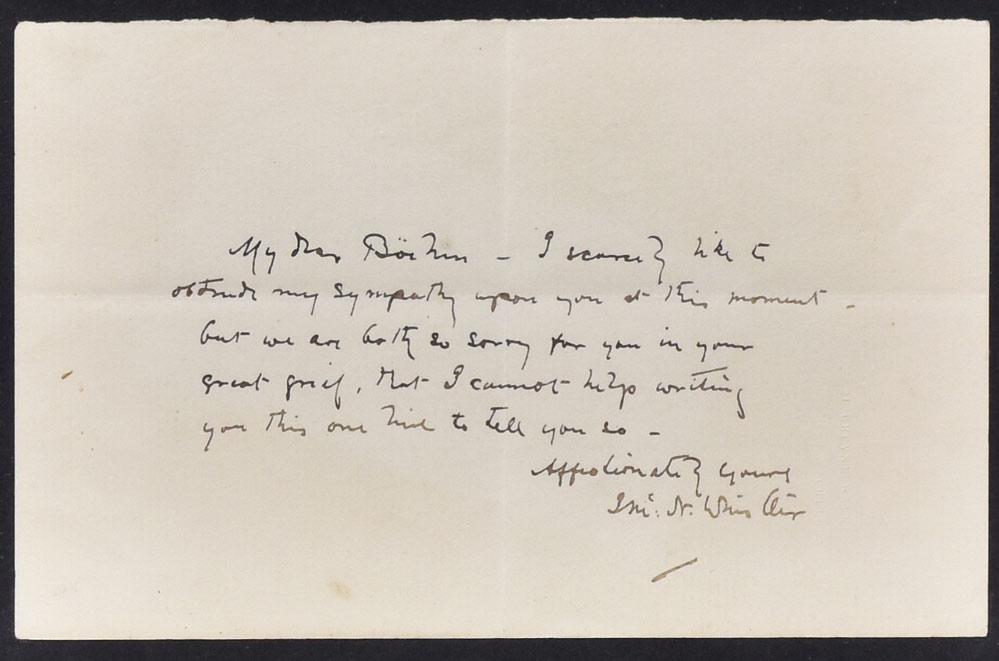 My dear Böehm – I scarcely like to
obtrude my sympathy upon you at this moment –
but we are both so sorry for you in your
great grief, that I cannot help writing
you this one line to tell you so –
Affectionately yours
J. Mc: N. Whistler